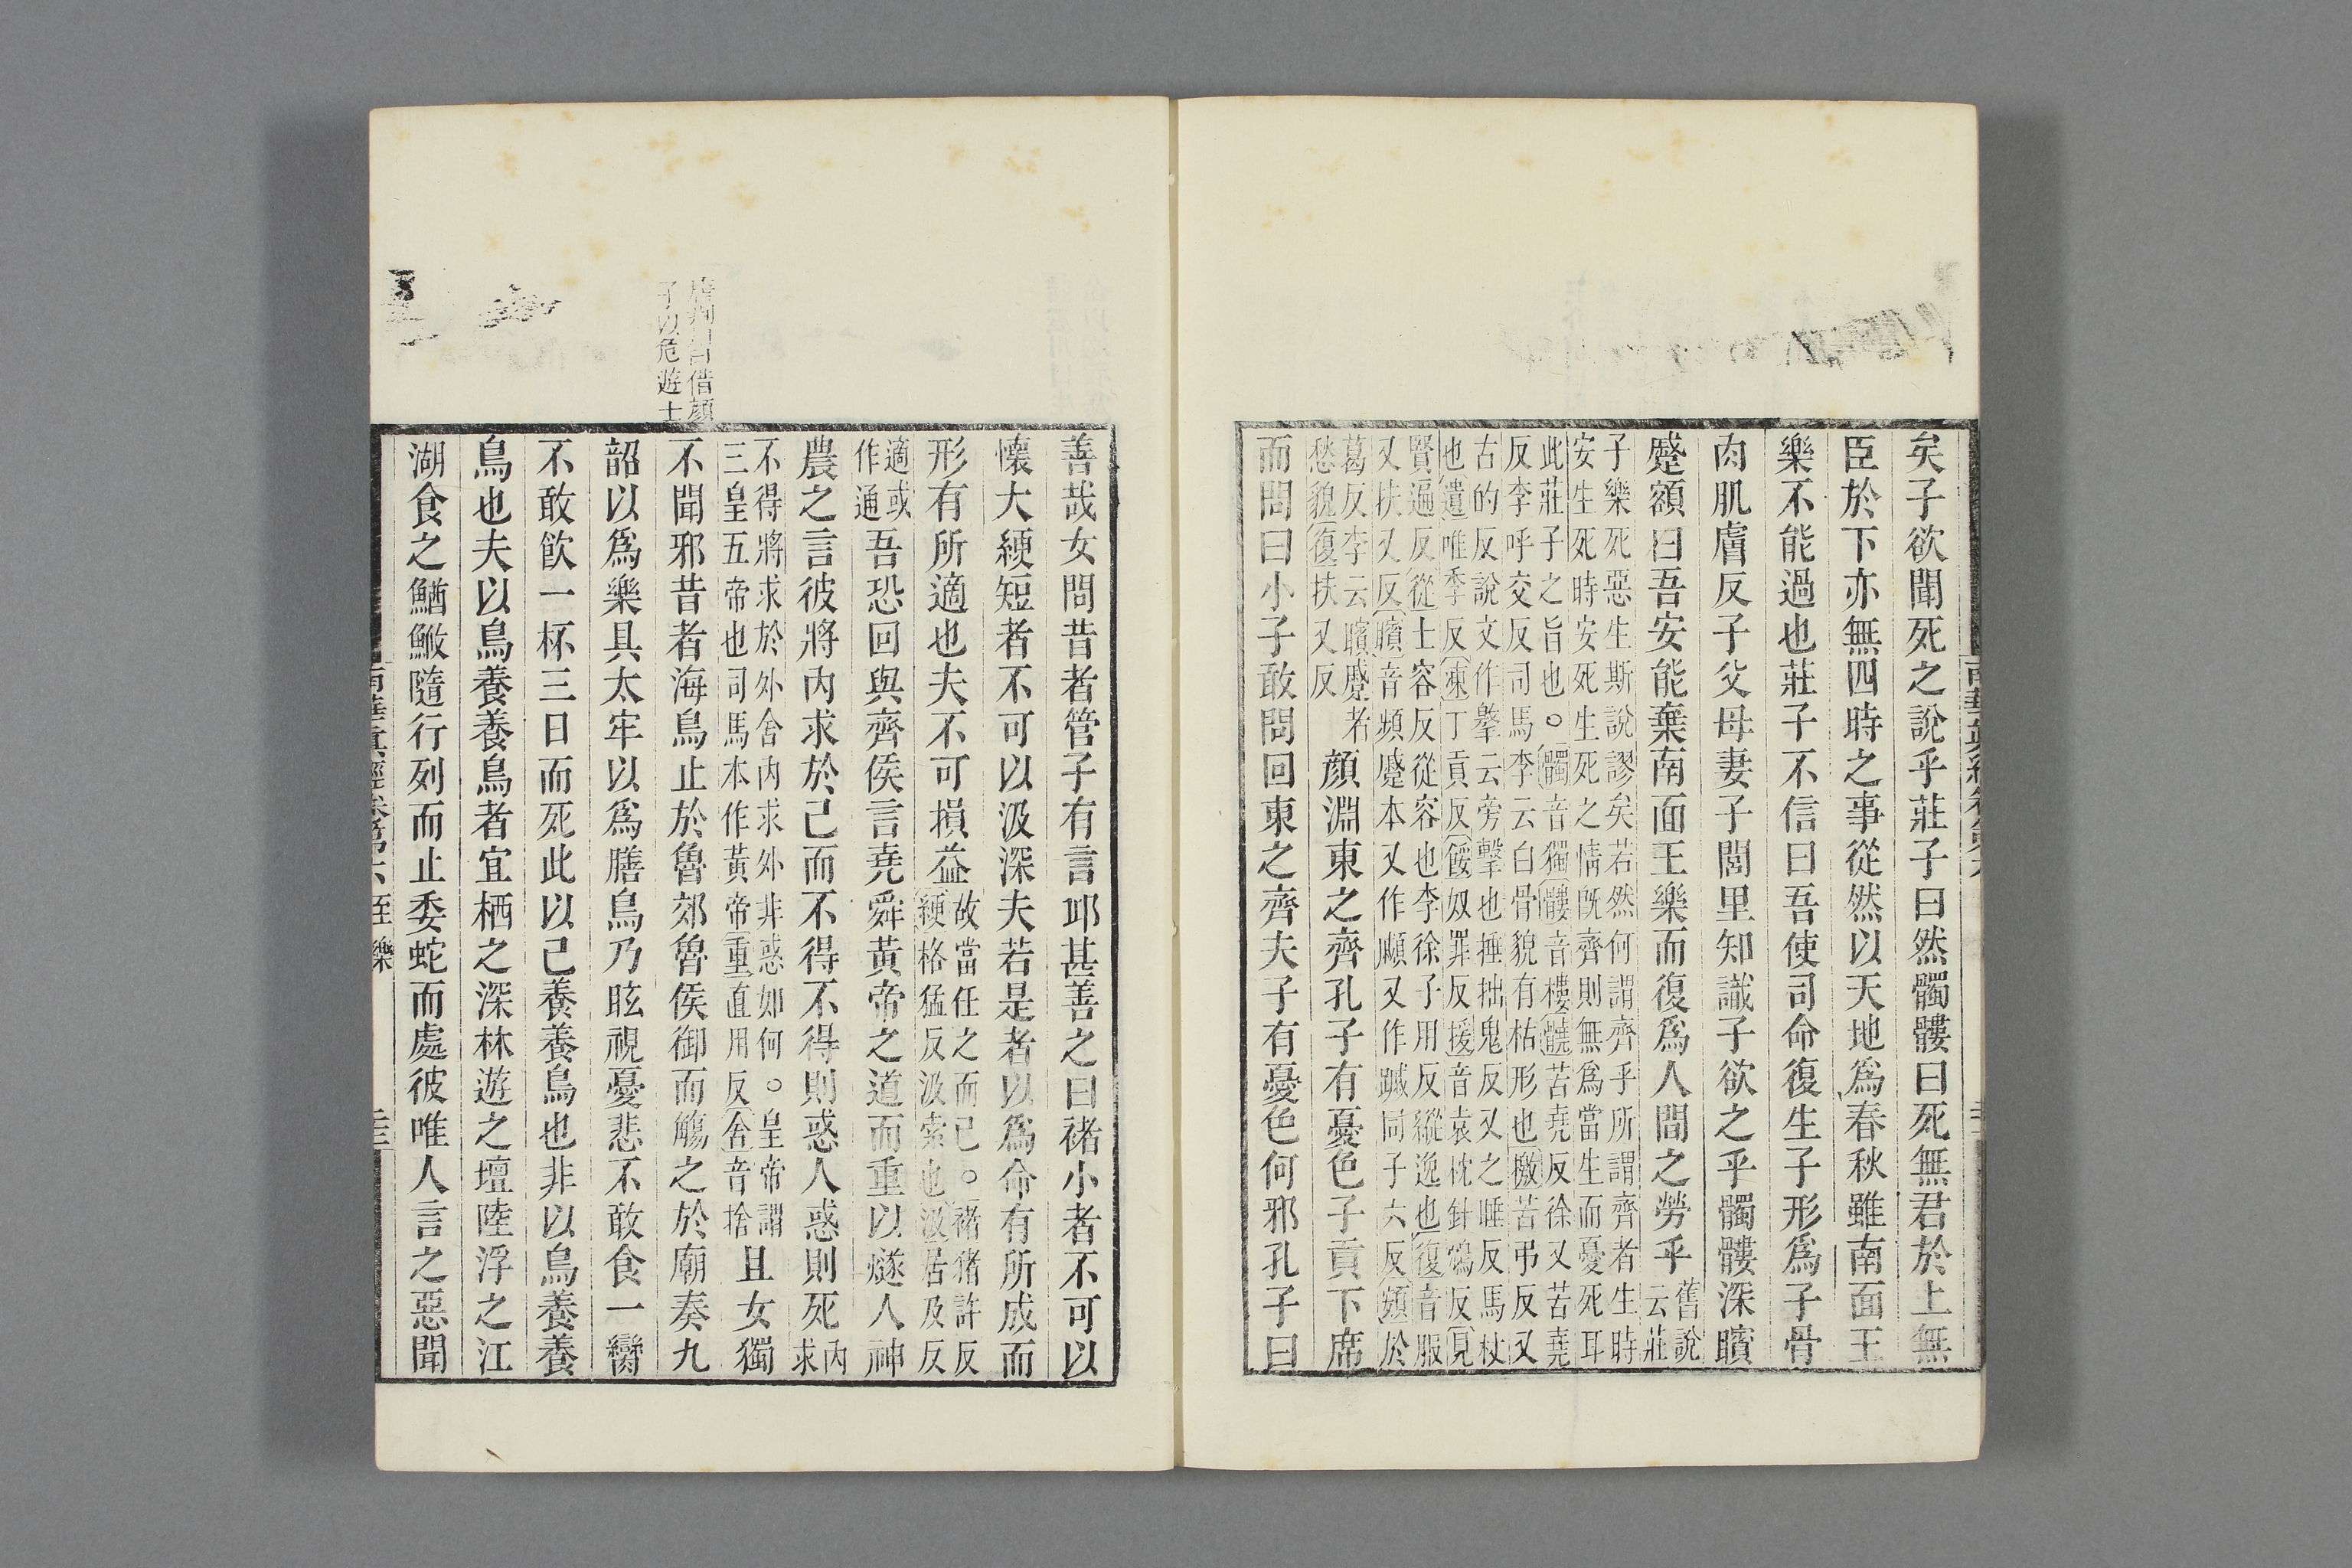 矣子欲聞死之說乎莊子曰然髑髏曰死無君於上無
臣於下亦無四時之事從然以天地爲春秋雖南面王
樂不能過也莊子不信曰吾使司命復生子形爲子骨
肉肌膚反子父母妻子閭里知識子欲之乎髑髏深矉
蹙頞曰吾安能棄南面王樂而復爲人間之勞乎舊說云莊
子樂死惡生斯說謬矣若然何謂齊乎所謂齊者生時
安生死時安死生死之情旣齊則無爲當生而憂死耳
此莊子之旨也○髑音獨髏音樓髐苦堯反徐又苦堯
反李呼交反司馬李云白骨貌有枯形也檄苦弔反又
古的反說文作擊云旁擊也捶拙鬼反又之睡反馬杖
也遺唯季反凍丁貢反餒奴罪反援音袁枕針鴆反見
賢遍反從士容反從容也李徐子用反縱逸也復音服
又扶又反矉音頻蹙本又作顣又作蹴同子六反頞於
葛反李云矉蹙者
愁貌復扶又反
顏淵東之齊孔子有憂色子貢下席
而問曰小子敢問回東之齊夫子有憂色何邪孔子曰
善哉女問昔者管子有言邱甚善之曰褚小者不可以
懷大綆短者不可以汲深夫若是者以爲命有所成而
形有所適也夫不可損益故當任之而已○褚豬許反綆格猛反汲索也汲居及反
適或作通吾恐回與齊侯言堯舜黃帝之道而重以燧人神
農之言彼將內求於己而不得不得則惑人惑則死內求
不得將求於外舍內求外非惑如何○皇帝謂
三皇五帝也司馬本作黃帝重直用反舍音捨
且女獨
不聞邪昔者海鳥止於魯郊魯侯御而觴之於廟奏九
韶以爲樂具太牢以爲膳鳥乃眩視憂悲不敢食一臠
不敢飲一杯三日而死此以己養養鳥也非以鳥養養
鳥也夫以鳥養養鳥者宜栖之深林遊之壇陸浮之江
湖食之鰌鮍隨行列而止委蛇而處彼唯人言之惡聞
借顏
子以危遊士
南華眞經卷第六 至樂